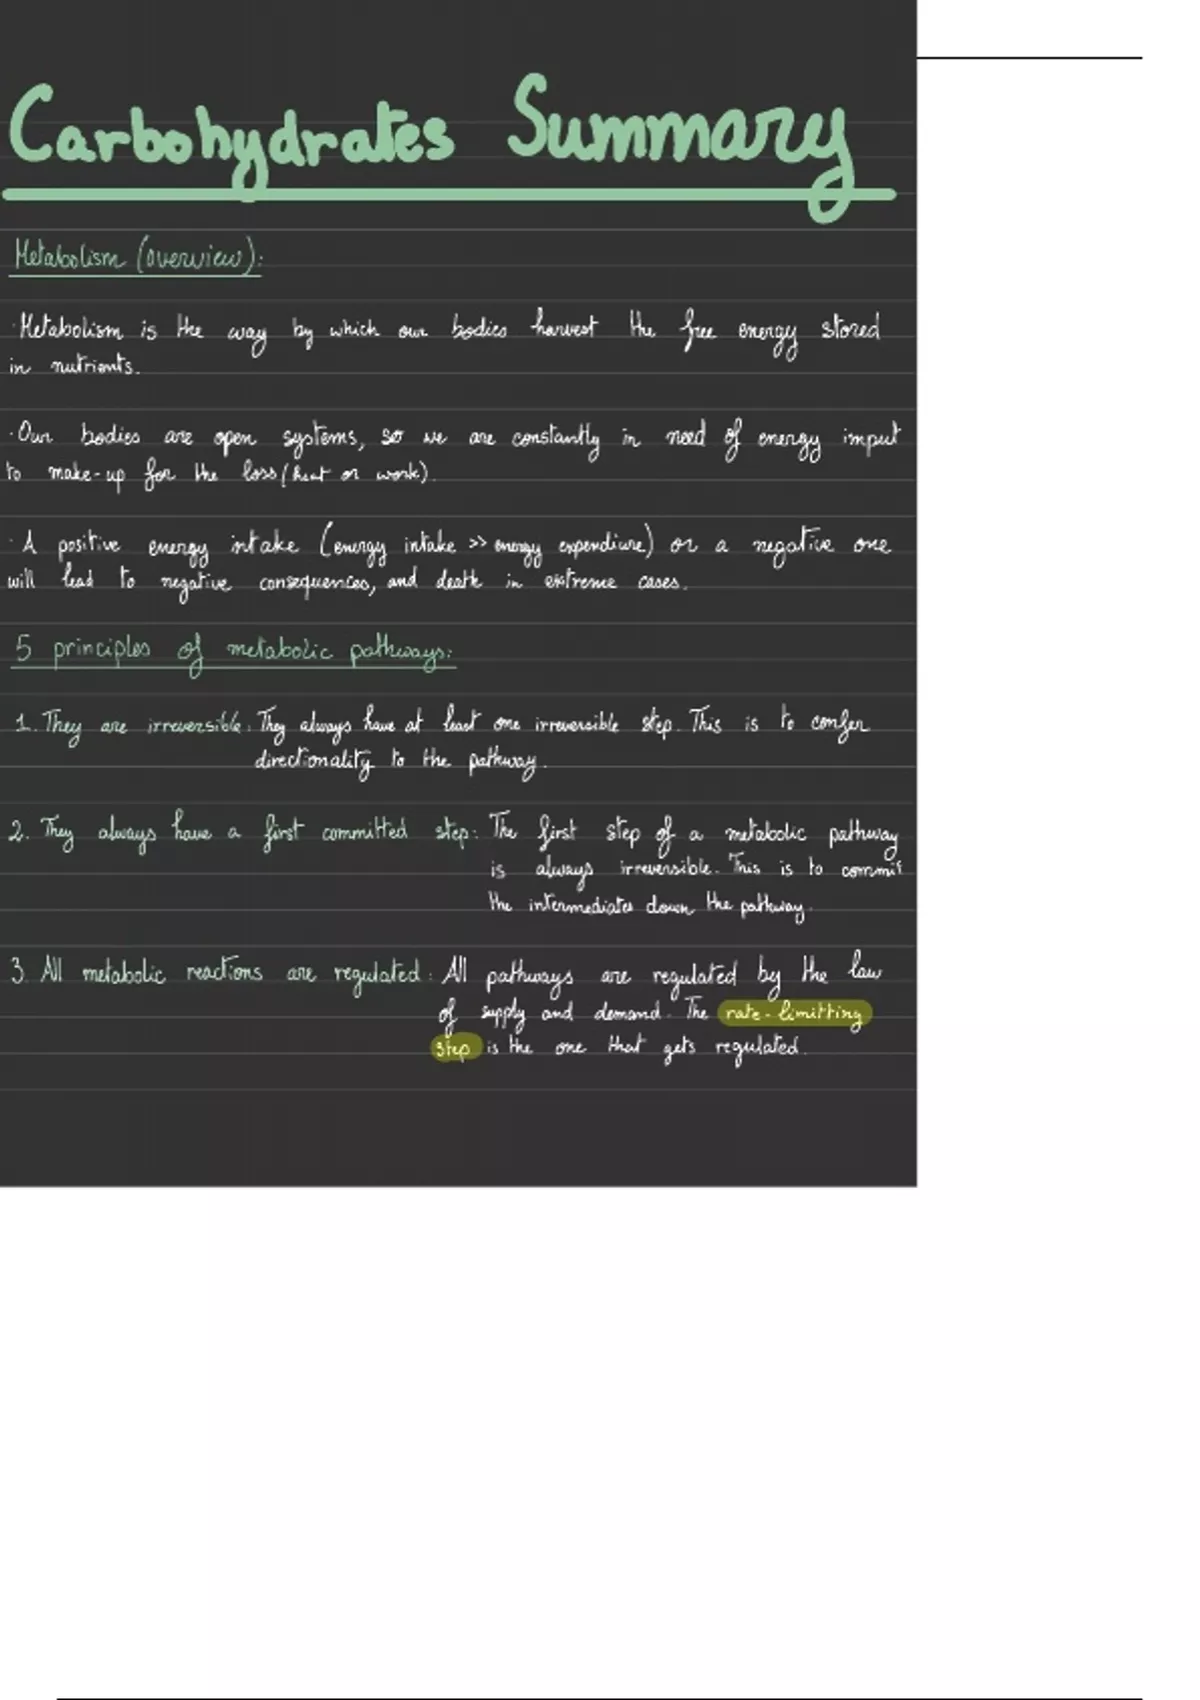 Carbohydrates Summary
Metabolism (overview):
·Metabolism is the way by which our bodies harvest the free energy stored
in nutrients.
·Our bodies are open systems, so we are constantly in need of energy input
to make-up for the loss (heat or work).
·A positive energy intake (energy intake >> energy expendiure) or a negative one
will lead to negative consequences, and death in extreme cases.
5 principles of metabolic pathways:
1. They are irreversible: They always have at least one irreversible step. This is to confer
directionality to the pathway.
2. They always have a first committed step: The first step of a metabolic pathway
is always irreversible. This is to commit
the intermediates down the pathway.
3. All metabolic reactions are regulated: All pathways are regulated by the law
of supply and demand. The rate-limitting
step is the one that gets regulated.